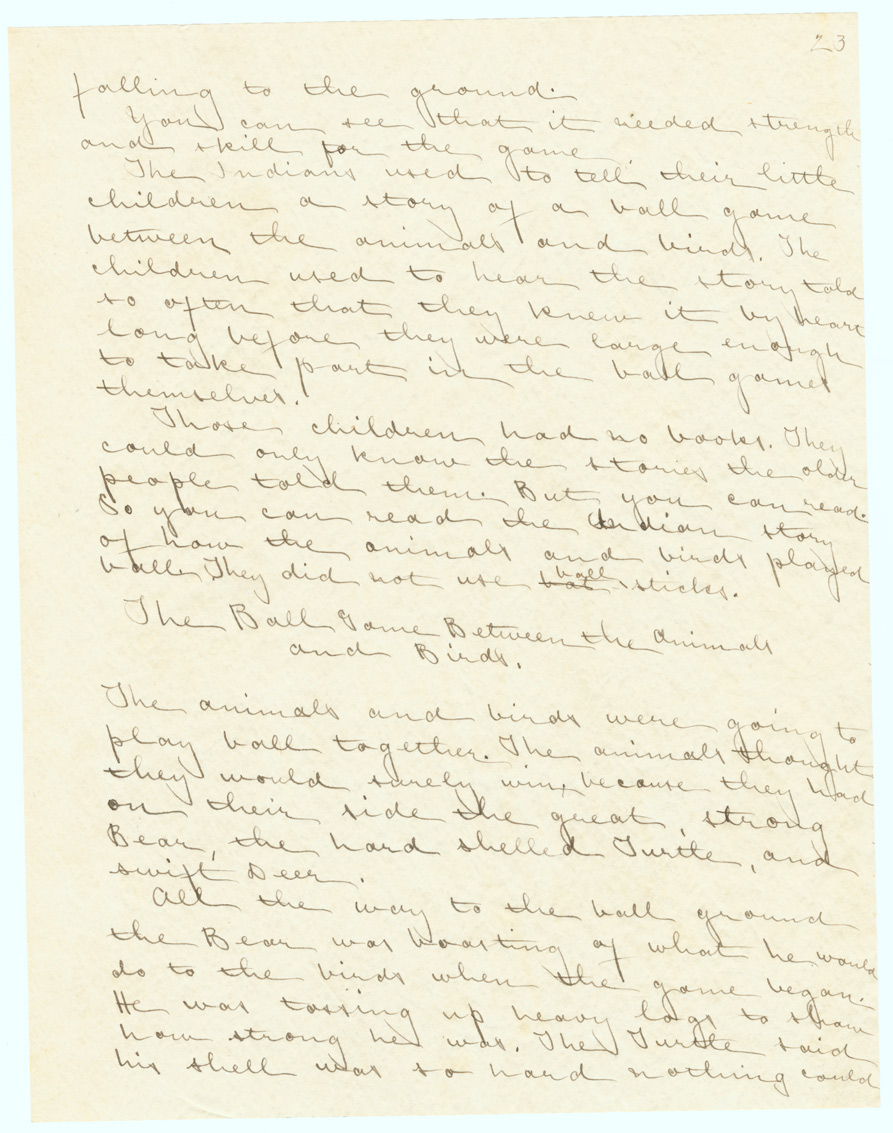 23
falling to the ground.
You can see that it needed strength
and skill for the game
The Indians used to tell their little
children a story of a ball game
between the animals and birds. The
children used to hear the story told
so often that they knew it by heart
long before they were large enough
to take part in the ball games
themselves.
Those children had no books. They
could only know the stories the older
people told them. But you can read.
So you can read the Indian story
of how the animals and birds played
ball. They did not use ball sticks.
The Ball Game Between the Animals
and Birds.
The animals and birds were going to
play ball together. The animals thought
they would surely win, because they had
on their side the great, strong
Bear, the hard shelled Turtle, and
swift Deer.
All the way to the ball ground
the Bear was boasting of what he would
do to the birds when the game began.
He was tossing up heavy logs to show
how strong he was. The Turtle said
his shell was so hard nothing could